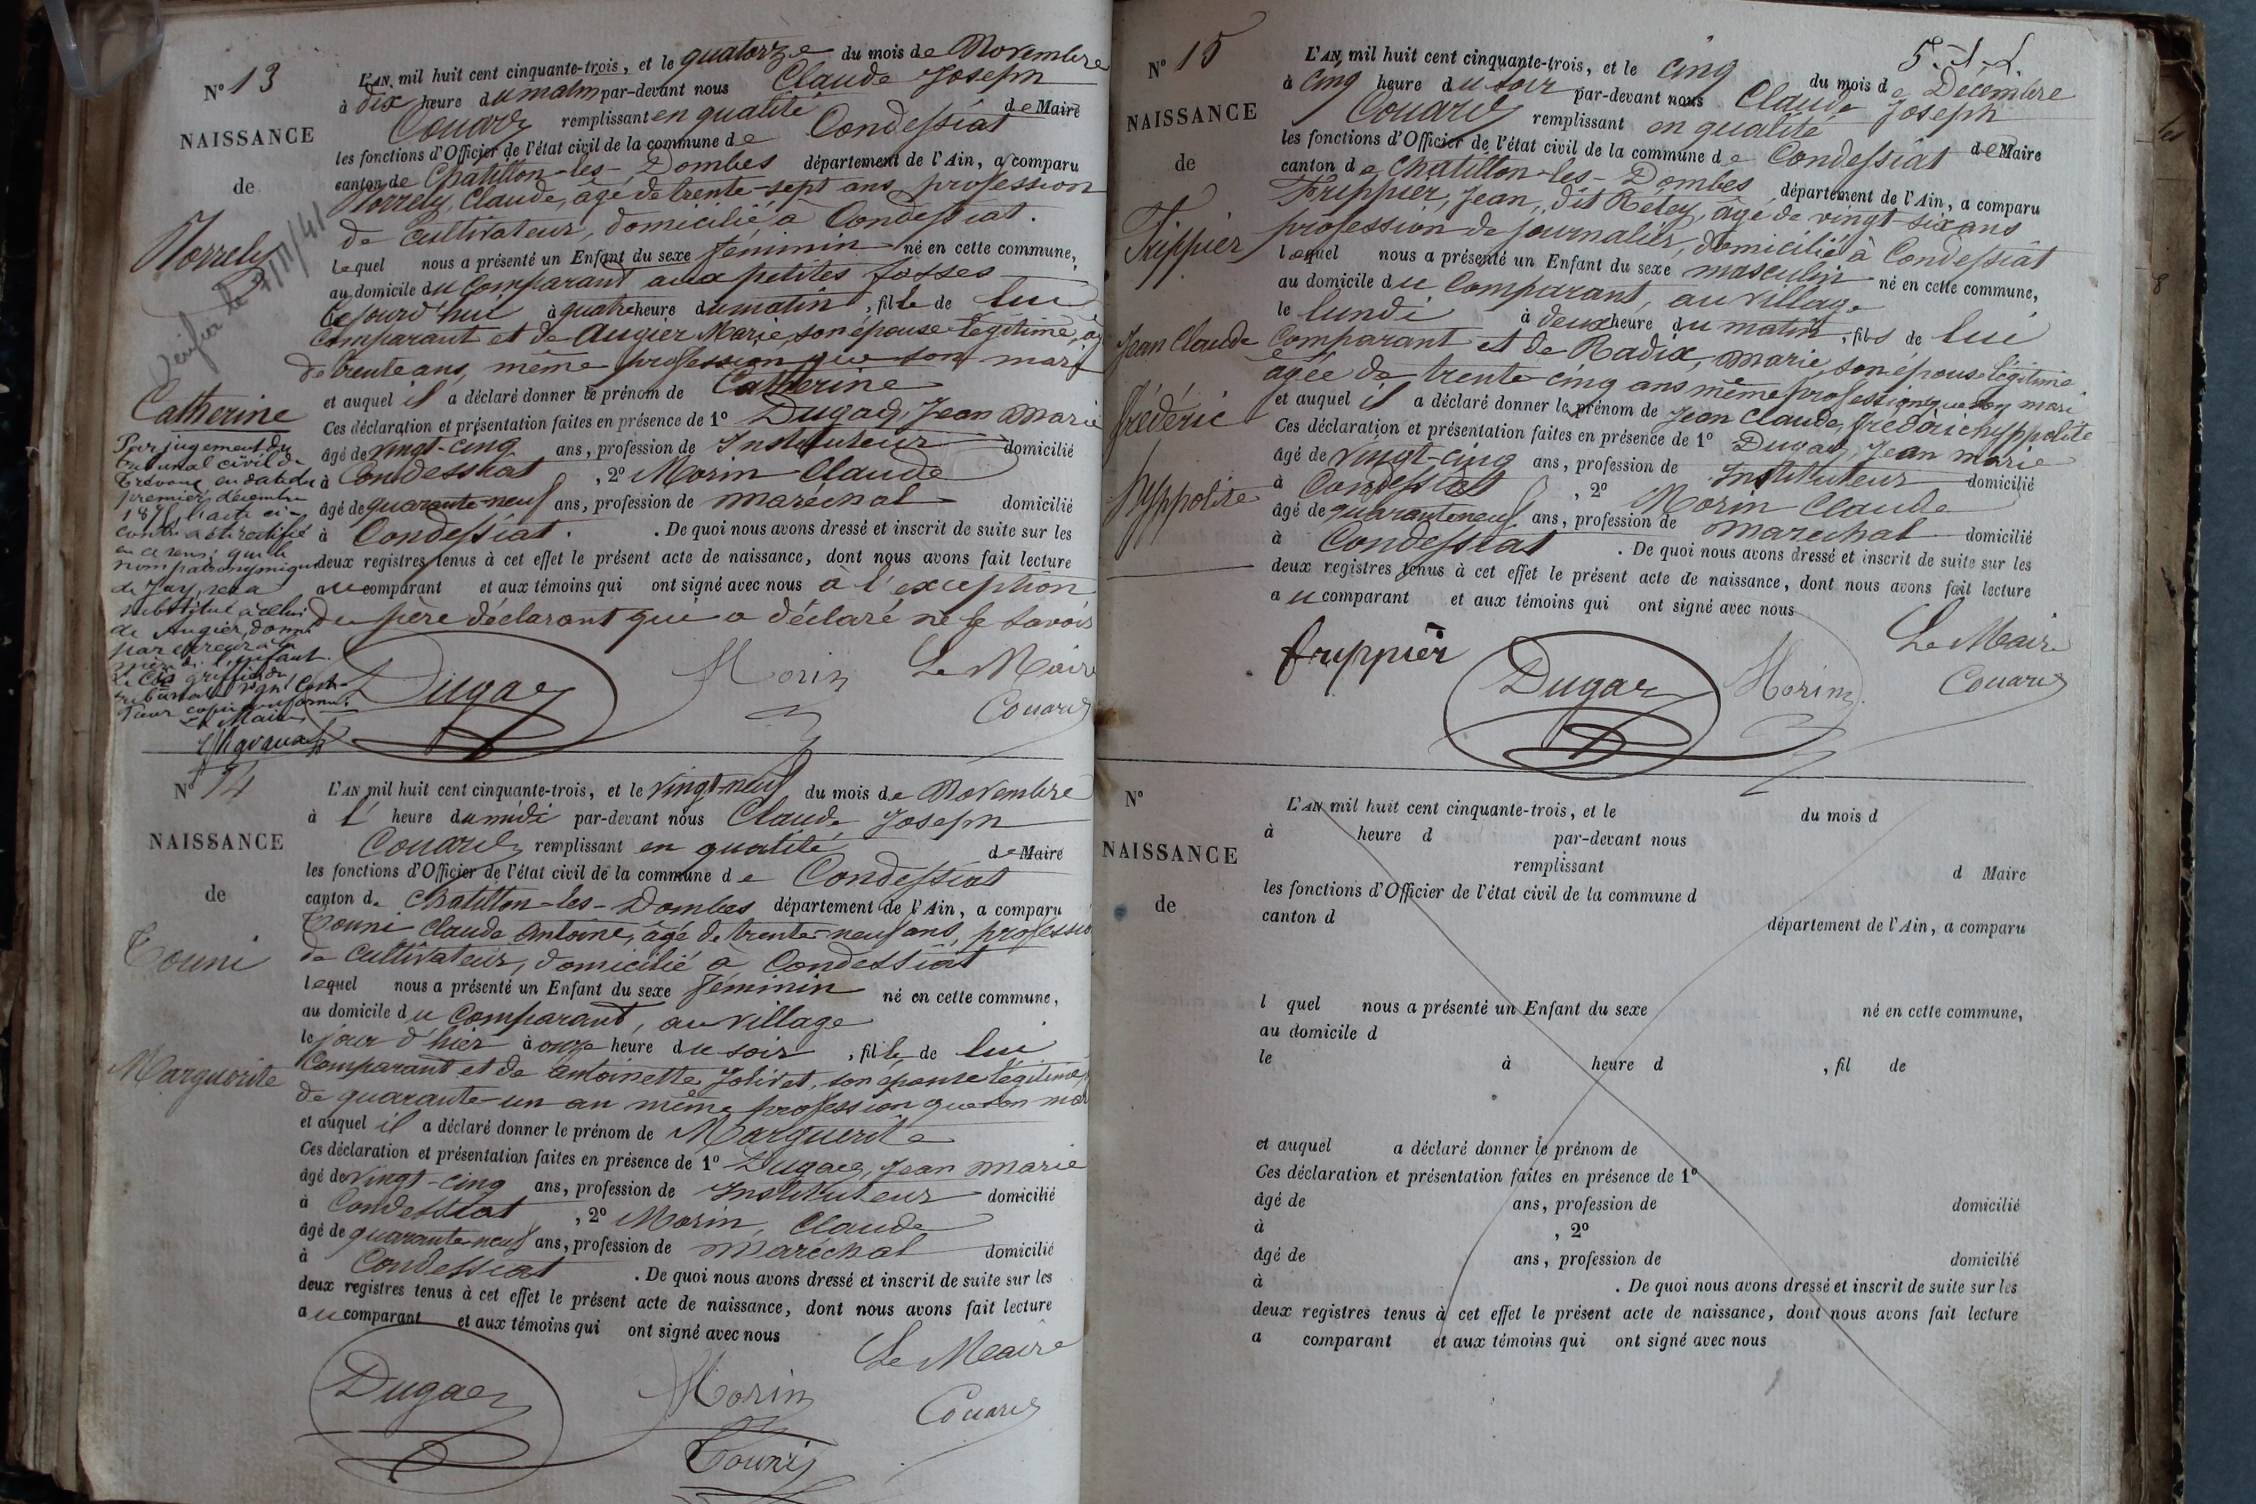 N° 13
NAISSANCE
de
Catherine
Par jugement du
tribunal civil de
Trévoux en date du
premier décembre
contre a été rectifié
en ce sens: que le
nom patronymique
de Jay sera
substitué à celui
de Augier, donné
par erreur à la
mère de l'enfant.
Pour copie conforme
Le Maire
L'AN mil huit cent cinquante-trois, et le quatorze du mois de Novembre
à dix heure du matin par-devant nous Claude Joseph
Couard remplissant en qualité de Maire
les fonctions d'Officier de l'état civil de la commune de Condessiat
canton de Chatillon-les-Dombes département de l'Ain, a comparu
Claude, âgé de trente-sept ans, profession
de cultivateur, domicilié à Condessiat.
lequel nous a présenté un Enfant du sexe féminin né en cette commune,
au domicile du comparant aux petites fosses
ce jourd'hui à quatre heure du matin, fille de lui
comparant et de Augier Marie, son épouse légitime, âg
de trente ans, même profession que son mari
et auquel il a déclaré donner le prénom de Catherine
Ces déclaration et présentation faites en présence de 1° Dugas, Jean Marie
âgé de vingt-cinq ans, profession de Instituteur domicilié
à Condessiat, 2° Morin Claude
âgé de quarante-neuf ans, profession de maréchal domicilié
à Condessiat. De quoi nous avons dressé et inscrit de suite sur les
deux registres tenus à cet effet le présent acte de naissance, dont nous avons fait lecture
au comparant et aux témoins qui ont signé avec nous à l'exception
du père déclarant qui a déclaré ne le savoir
Dugas Morin Le Maire
Couard
N° 14
NAISSANCE
de
Touni
Marguerite
L'AN mil huit cent cinquante-trois, et le vingt-neuf du mois de Novembre
à l' heure du midi par-devant nous Claude Joseph
Couard remplissant en qualité de Maire
les fonctions d'Officier de l'état civil de la commune de Condessiat
canton de Chatillon-les-Dombes département de l'Ain, a comparu
Touni Claude Antoine, âgé de trente-neuf ans, professio
de cultivateur, domicilié à Condessiat
lequel nous a présenté un Enfant du sexe féminin né en cette commune,
au domicile du comparant, au village
le jour d'hier à onze heure du soir, fille de lui
comparant et de Antoinette Jolivet, son épouse légitime,
de quarante-un an même profession que son mar
et auquel il a déclaré donner le prénom de Marguerite
Ces déclaration et présentation faites en présence de 1° Dugas, Jean Marie
âgé de vingt-cinq ans, profession de Instituteur domicilié
à Condessiat, 2° Morin, Claude
âgé de quarante-neuf ans, profession de maréchal domicilié
à Condessiat. De quoi nous avons dressé et inscrit de suite sur les
deux registres tenus à cet effet le présent acte de naissance, dont nous avons fait lecture
au comparant et aux témoins qui ont signé avec nous
Dugas Morin Le Maire
Couard
Touni
N° 15
NAISSANCE
de
Frippier
Jean Claude
frédéric
hyppolite
L'AN mil huit cent cinquante-trois, et le cinq du mois de Décembre
à cinq heure du soir par-devant nous Claude Joseph
Couard remplissant en qualité de Maire
les fonctions d'Officier de l'état civil de la commune de Condessiat
canton de Chatillon-les-Dombes département de l'Ain, a comparu
Frippier, Jean, dit Réley, âgé de vingt-six ans
profession de journalier, domicilié à Condessiat
lequel nous a présenté un Enfant du sexe masculin né en cette commune,
au domicile du comparant, au village
le lundi à deux heure du matin, fils de lui
comparant et de Radix, Marie, son épouse légitime
âgée de trente cinq ans même profession que son mari
et auquel il a déclaré donner le prénom de Jean Claude, frédéric hyppolite
Ces déclaration et présentation faites en présence de 1° Dugas, Jean Marie
âgé de vingt-cinq ans, profession de Instituteur domicilié
à Condessiat, 2° Morin Claude
âgé de quarante neuf ans, profession de maréchal domicilié
à Condessiat. De quoi nous avons dressé et inscrit de suite sur les
deux registres tenus à cet effet le présent acte de naissance, dont nous avons fait lecture
au comparant et aux témoins qui ont signé avec nous
fruppier Dugas Morin Le Maire
Couard
N°
NAISSANCE
de
L'AN mil huit cent cinquante-trois, et le du mois d
à heure d par-devant nous
remplissant d Maire
les fonctions d'Officier de l'état civil de la commune d
canton d département de l'Ain, a comparu
l quel nous a présenté un Enfant du sexe né en cette commune,
au domicile d
le à heure d , fil de
et auquel a déclaré donner le prénom de
Ces déclaration et présentation faites en présence de 1°
âgé de ans, profession de domicilié
à , 2°
âgé de ans, profession de domicilié
à . De quoi nous avons dressé et inscrit de suite sur les
deux registres tenus à cet effet le présent acte de naissance, dont nous avons fait lecture
a comparant et aux témoins qui ont signé avec nous